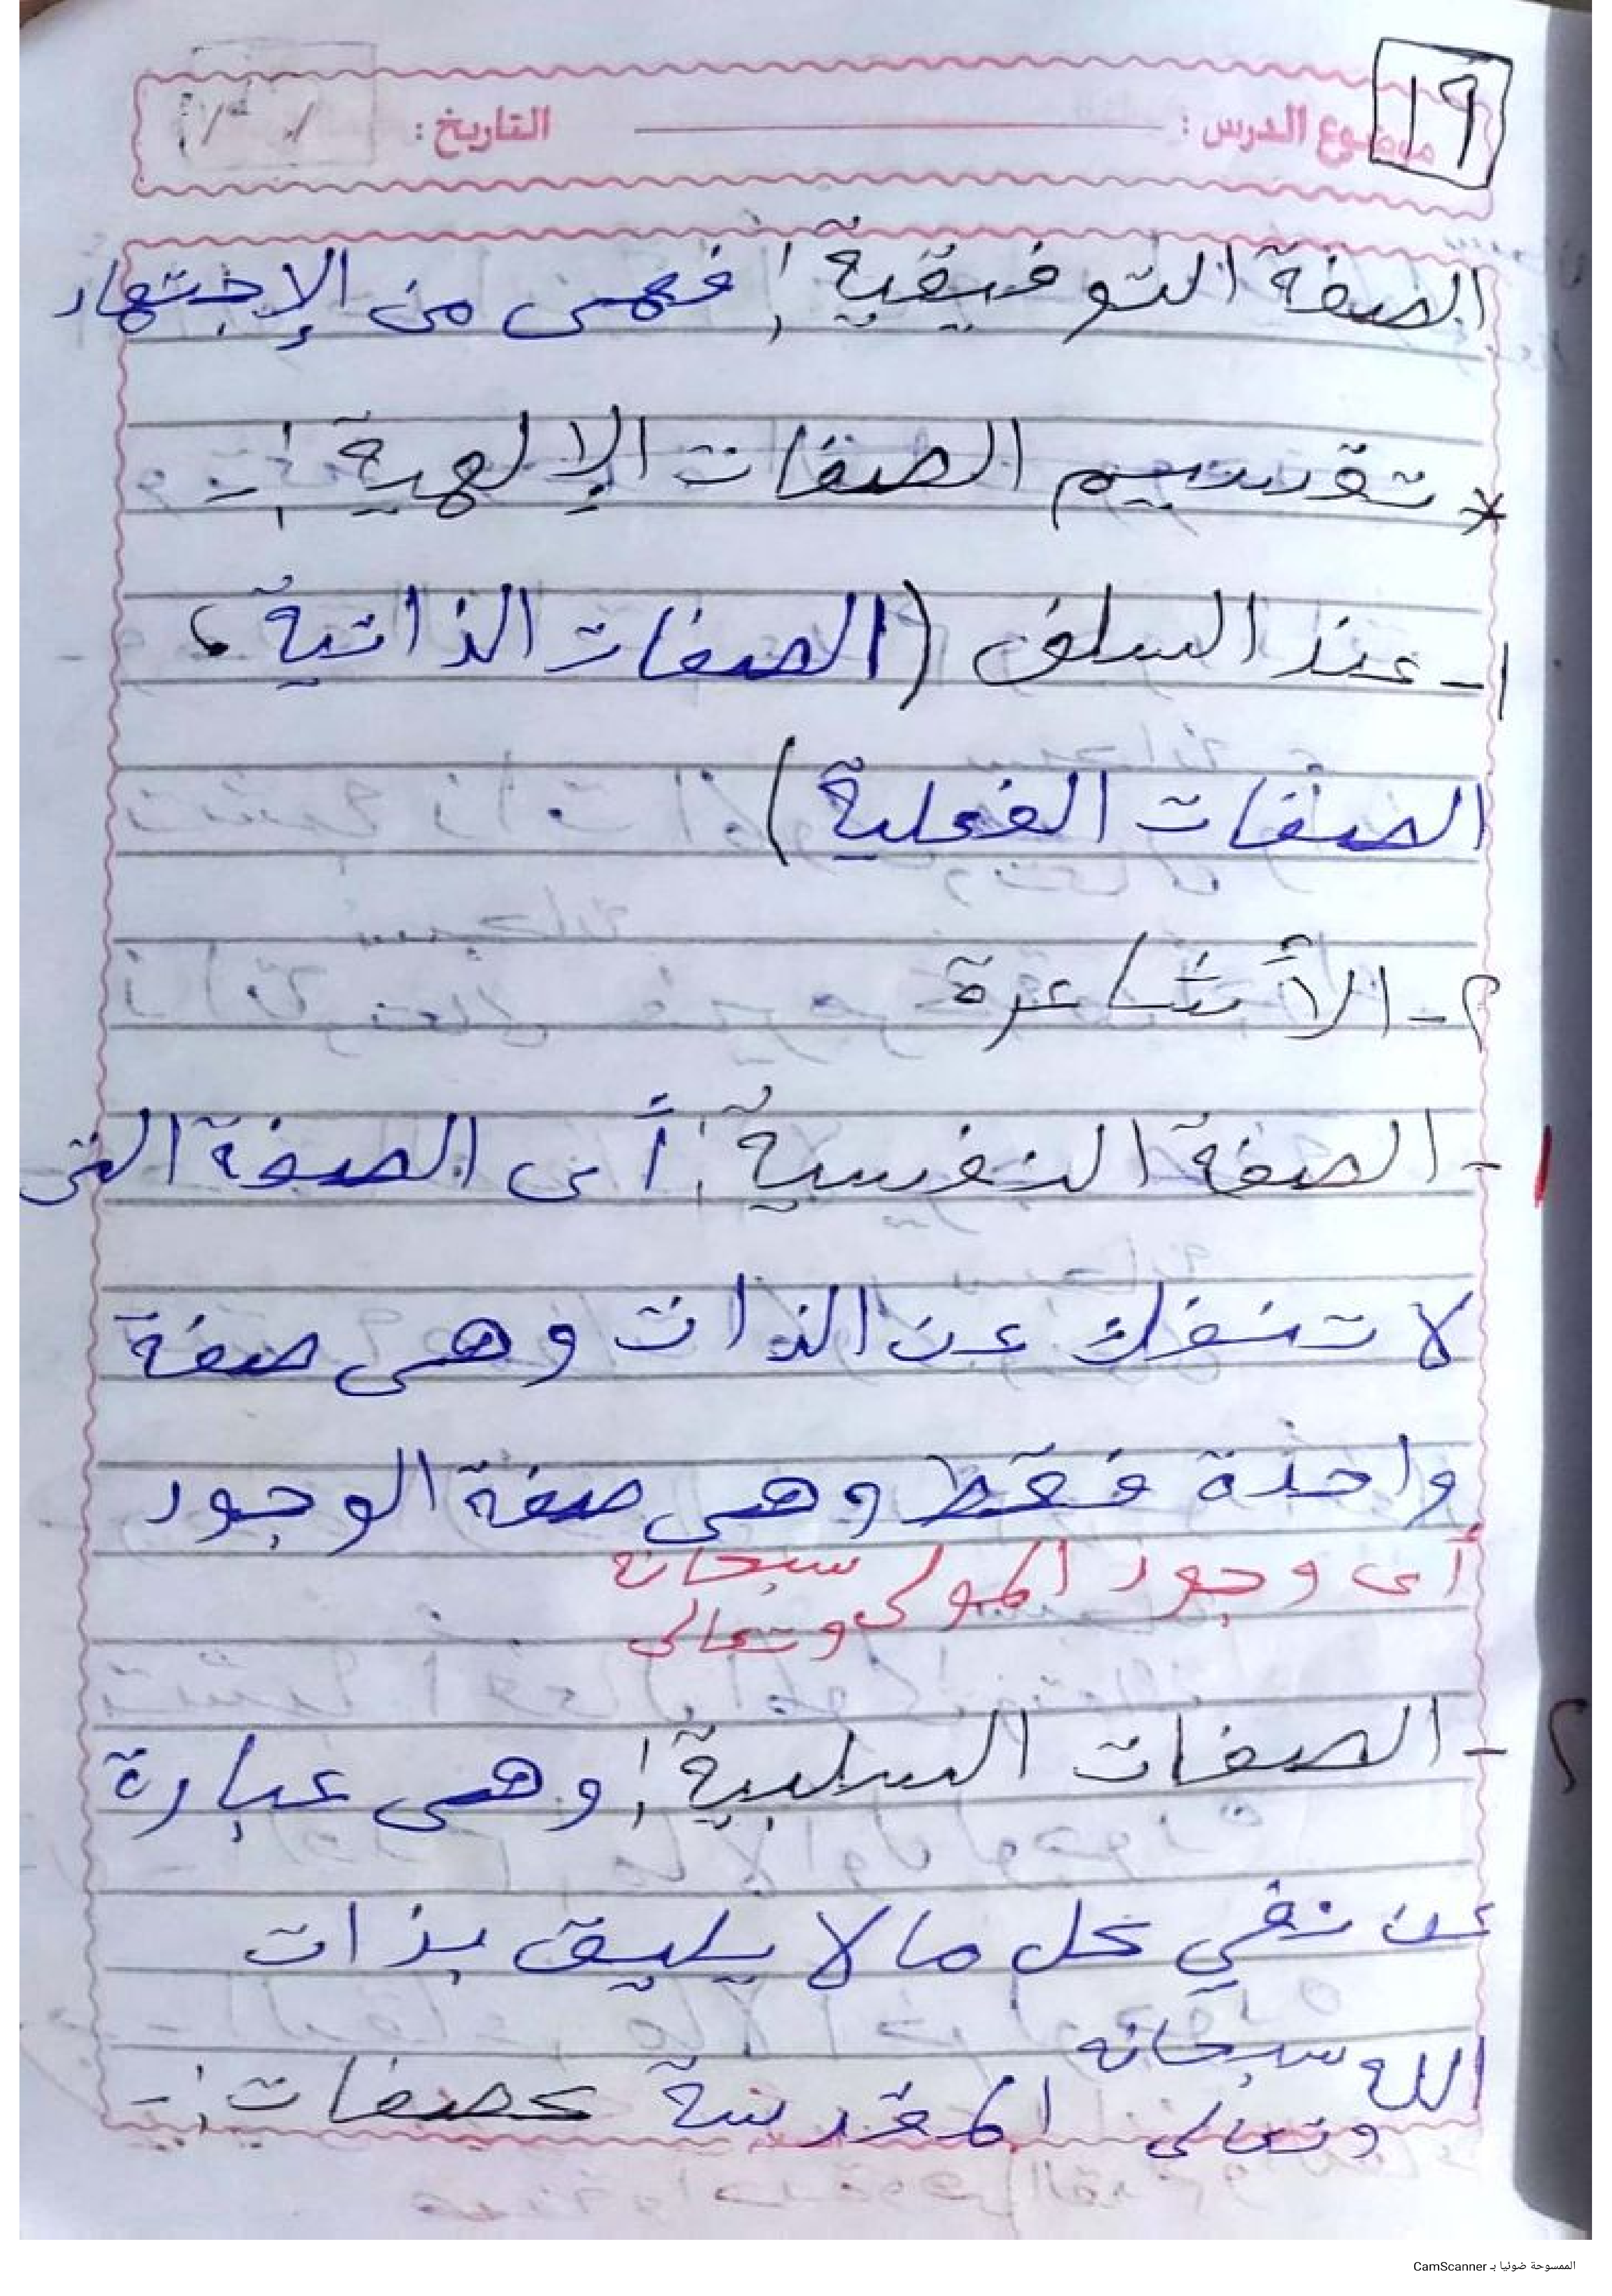 ١٩
موضوع الدرس : التاريخ : / /
الصفة التوفيقية : فهى من الإجتهاد
* تقسيم الصفات الإلهية :-
١- عند السلف (الصفات الذاتية ،
الصفات الفعلية)
٢- الأشاعرة
١- الصفة النفسية : أى الصفة التى
لا تنفك عن الذات وهى صفة
واحدة فقط وهى صفة الوجود
أى وجود المولى سبحانه
وتعالى
٢- الصفات السلبية : وهى عبارة
عن نفي كل ما لا يليق بذات
الله سبحانه
وتعالى المقدسة كصفات :-
الممسوحة ضوئيا بـ CamScanner